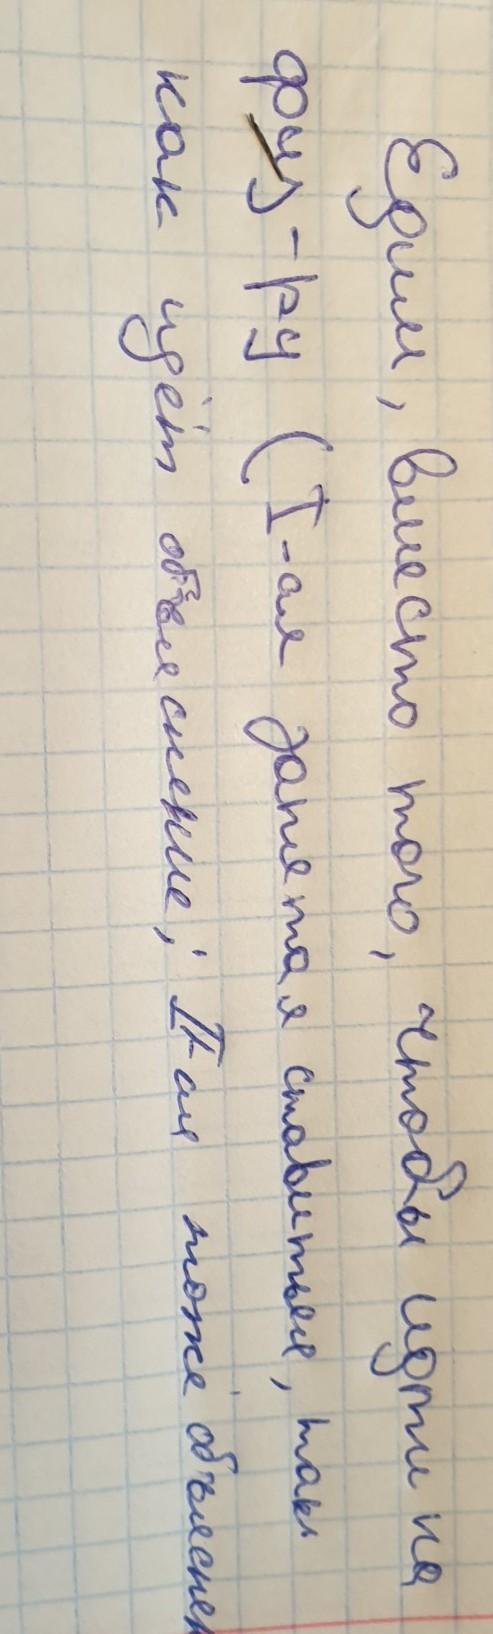 Едим, вместо того, чтобы идти на
физ-ру (I-ая запятая ставиться, так
как идёт объяснение; II-ая тоже объяснен